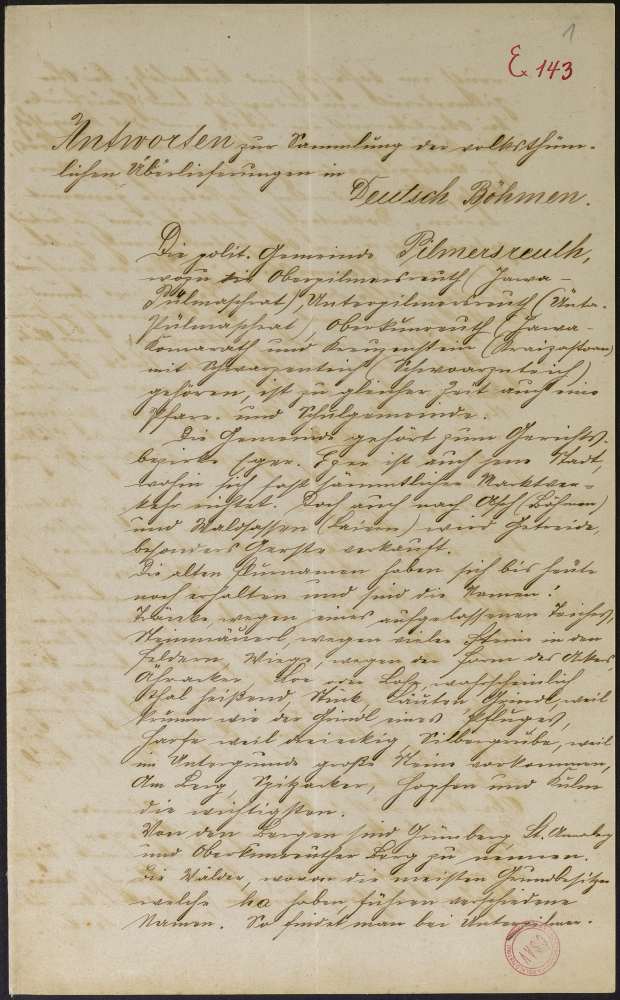 1
E. 143
Antworten zur Sammlung der volksthüm-
lichen Überlieferungen in
Deutsch Böhmen.
Die polit. Gemeinde Pilmersreuth,
wozu die Oberpilmersreuth (Jawa-
Pülmaschrat), Unterpilmersreuth (Unta-
Pülmaschrat), Oberkunreuth (Jawa-
Konarath und Kreuzenstein (Kraizastoan)
mit Schwarzenteich (Schwoarznteich)
gehören, ist zu gleicher Zeit auch eine
Pfarr- und Schulgemeinde.
Die Gemeinde gehört zum Gerichts-
bezirke Eger. Eger ist auch jene Stadt,
wohin sich fast sämmtlicher Marktver-
kehr richtet. Doch auch nach Asch (Böhmen)
und Waldsassen (Baiern) wird Getreide,
besonders Gerste verkauft.
Die alten Flurnamen haben sich bis heute
noch erhalten und sind die Namen:
Tränke, wegen eines aufgelassenen Teiches,
Steinmäuerl, wegen vieler Steine in den
Feldern, Wiege, wegen der Form des Akers,
Ahracker, Loe oder Lohe wahrscheinlich
Thal heißend, Stuck, Gründl, weil
krumm wie der Gründl eines Pfluges,
Harfe weil dreieckig Silbergrube, weil
im Untergrunde große Steine vorkommen,
Am Berg, Spitzacker, Hopfen und Külm
die wichtigsten.
Von den Bergen sind Grünberg, St. Annaberg
und Oberkunreuther Berg zu nennen.
Die Wälder, wovon die meisten Grundbesitzer
welche ha haben führen verschiedene
Namen. So findet man bei Unterpilmers-